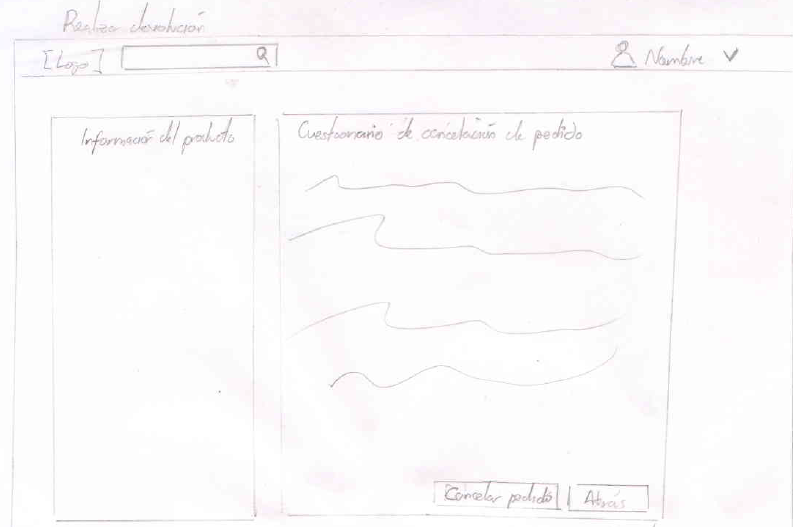 Realizar devolución
[Logo]
Nombre
Información del producto
Cuestionario de cancelación de pedido
Cancelar pedido
Atrás